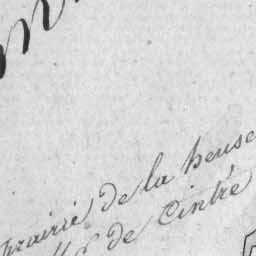 prairie de la heuse
de Cintré